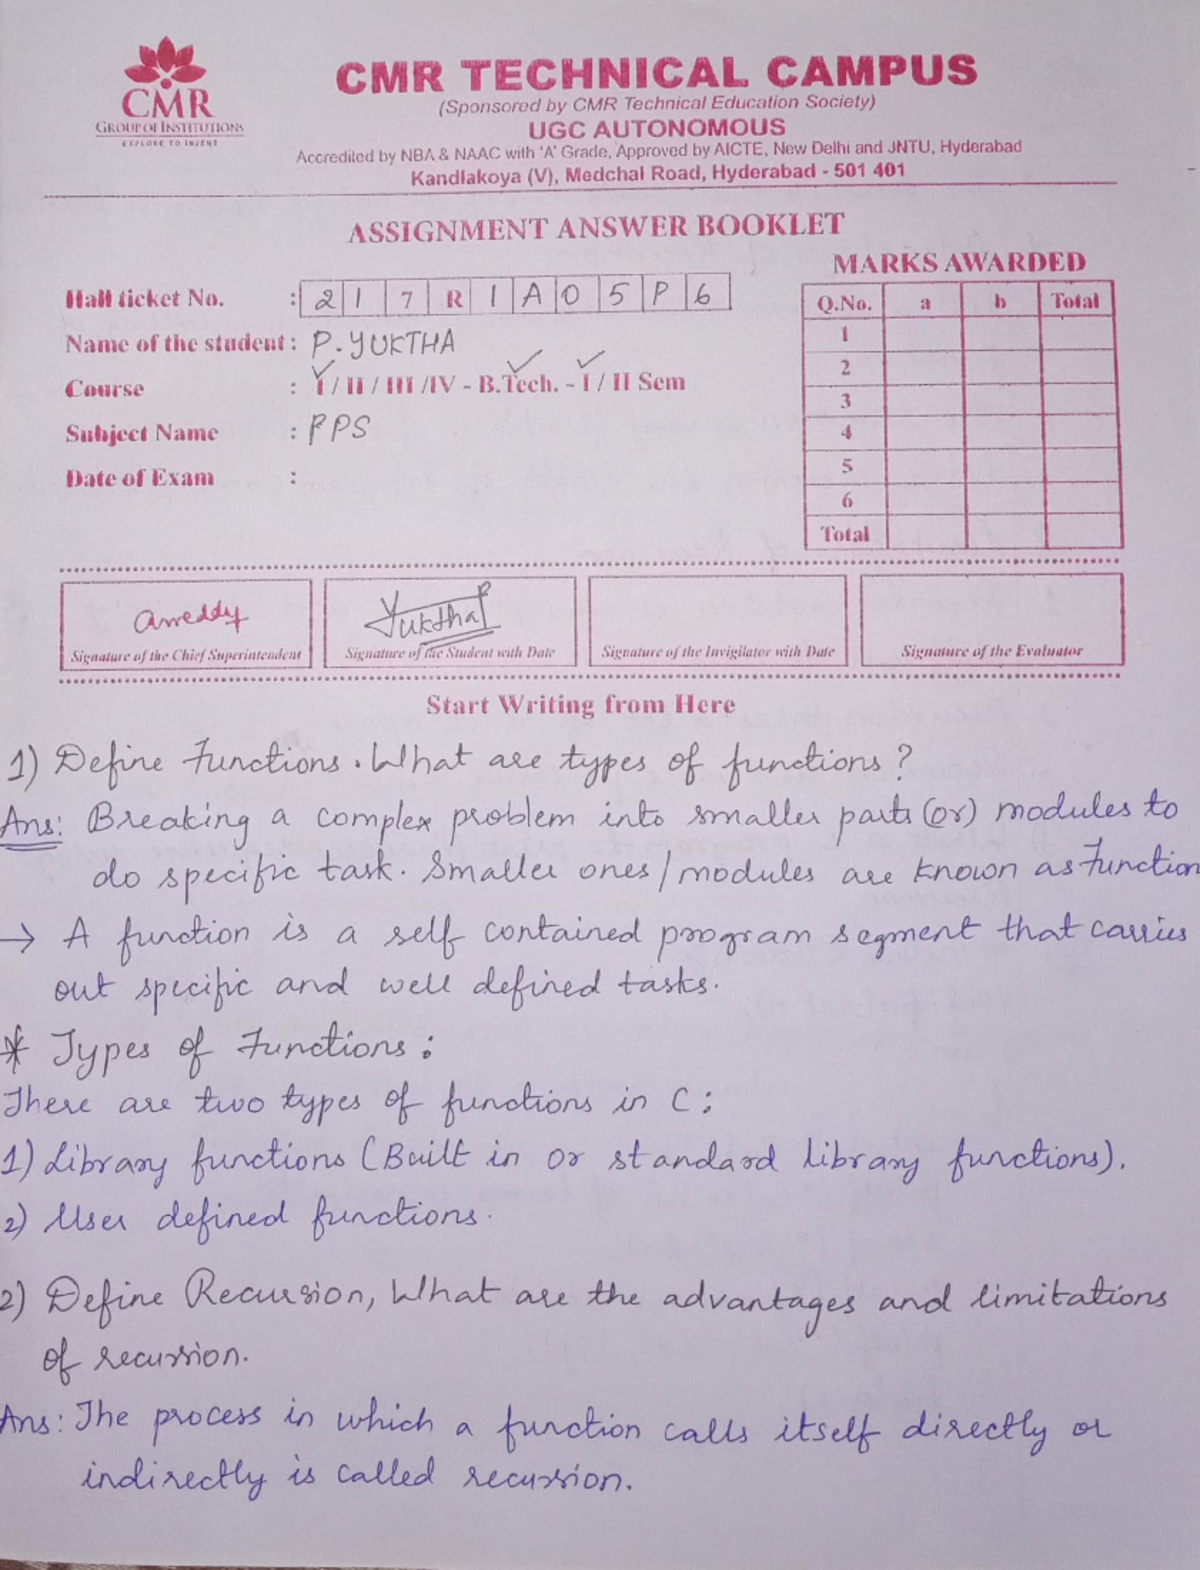 CMR
GROUP OF INSTITUTIONS
EXPLORE TO INVENT
CMR TECHNICAL CAMPUS
(Sponsored by CMR Technical Education Society)
UGC AUTONOMOUS
Accredited by NBA & NAAC with 'A' Grade, Approved by AICTE, New Delhi and JNTU, Hyderabad
Kandlakoya (V), Medchal Road, Hyderabad - 501 401
ASSIGNMENT ANSWER BOOKLET
Hall ticket No. : 2 1 7 R 1 A 0 5 P 6
Name of the student : P. YUKTHA
Course : I / II / III /IV - B.Tech. - I / II Sem
Subject Name : PPS
Date of Exam :
MARKS AWARDED
Q.No. a b Total
1
2
3
4
5
6
Total
Signature of the Chief Superintendent
Yuktha P
Signature of the Student with Date
Signature of the Invigilator with Date
Signature of the Evaluator
Start Writing from Here
1) Define Functions. What are types of functions?
Ans: Breaking a complex problem into smaller parts (or) modules to
do specific task. Smaller ones/modules are known as Function
→ A function is a self contained program segment that carries
out specific and well defined tasks.
* Types of Functions:
There are two types of functions in C:
1) Library functions (Built in or standard library functions).
2) User defined functions.
2) Define Recursion, What are the advantages and limitations
of recursion.
Ans: The process in which a function calls itself directly or
indirectly is called recursion.